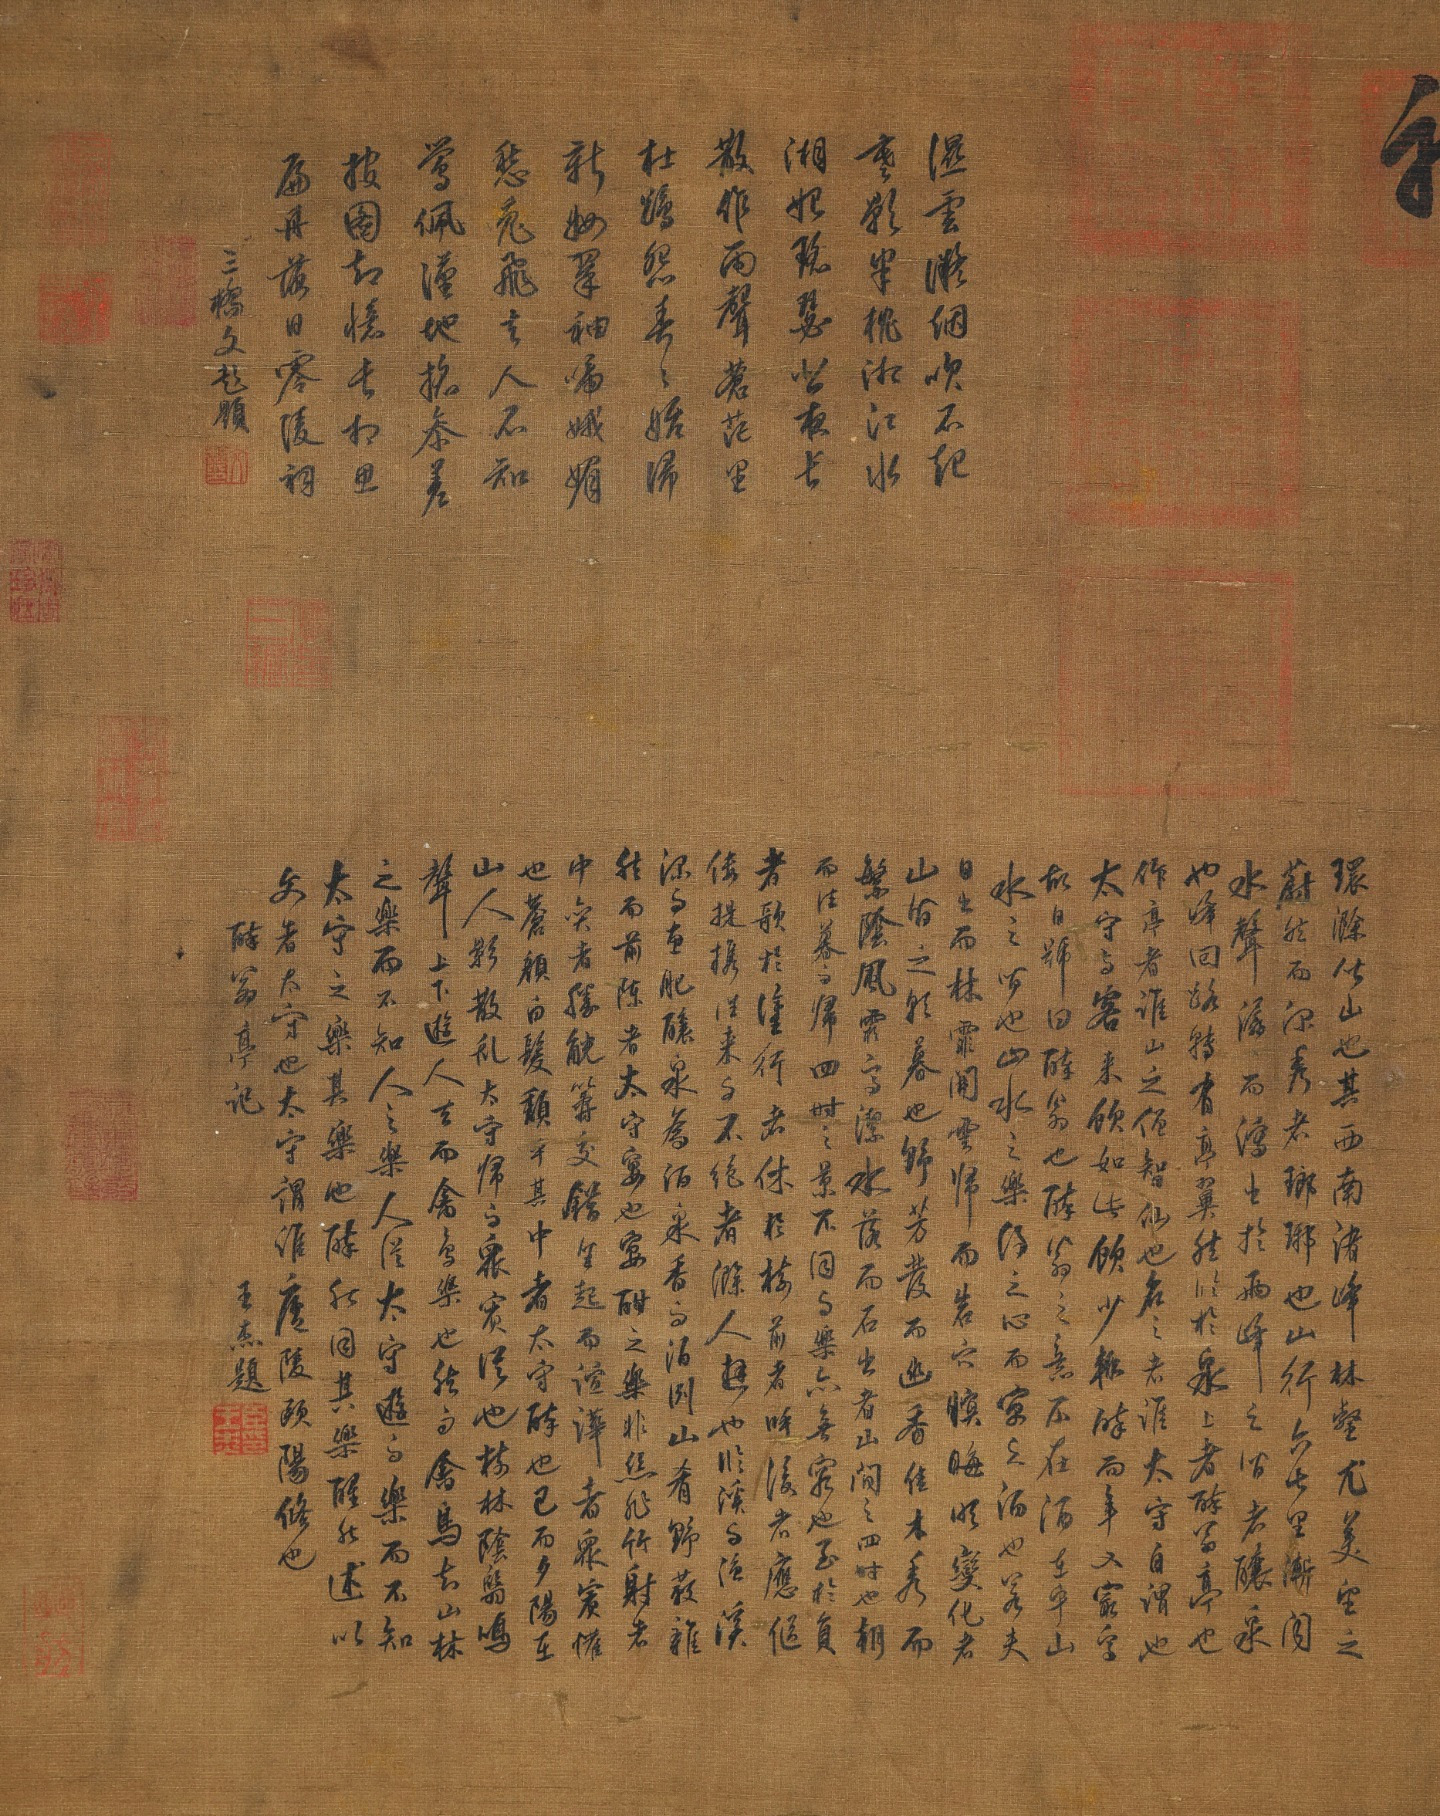 濕雲凝烟吹不起
雲影半枕湘江水
湘妃瑤瑟悲夜長
散作雨聲蒼茫里
杜鵑怨春春始歸
新妝翠袖啼娥媚
愁鸞飛去人不知
鸞佩滿地拾參差
披圖却憶長相思
扁舟落日零陵祠
三橋文彭題
環滁皆山也其西南諸峰林壑尤美望之
蔚然而深秀者瑯琊也山行六七里漸聞
水聲潺潺而瀉出於兩峰之間者釀泉
也峰回路轉有亭翼然臨於泉上者醉翁亭也
作亭者誰山之僧智仙也名之者誰太守自謂也
太守與客來飲於此飲少輒醉而年又最高
故自號曰醉翁也醉翁之意不在酒在乎山
水之間也山水之樂得之心而寓之酒也若夫
日出而林霏開雲歸而岩穴暝晦明變化者
山間之朝暮也野芳發而幽香佳木秀而
繁陰風霜高潔水落而石出者山間之四時也朝
而往暮而歸四時之景不同而樂亦無窮也至於負
者歌於塗行者休於樹前者呼後者應傴
僂提攜往來而不絕者滁人遊也臨溪而漁溪
深而魚肥釀泉為酒泉香而酒洌山肴野蔌雜
然而前陳者太守宴也宴酣之樂非絲非竹射者
中弈者勝觥籌交錯坐起而諠譁者衆賓懽
也蒼顏白髮頹乎其中者太守醉也已而夕陽在
山人影散亂太守歸而衆賓從也樹林陰翳鳴
聲上下遊人去而禽鳥樂也然而禽鳥知山林
之樂而不知人之樂人從太守遊而樂而不知
太守之樂其樂也醉能同其樂醒能述以
文者太守也太守謂誰廬陵歐陽修也
醉翁亭記
王杰題